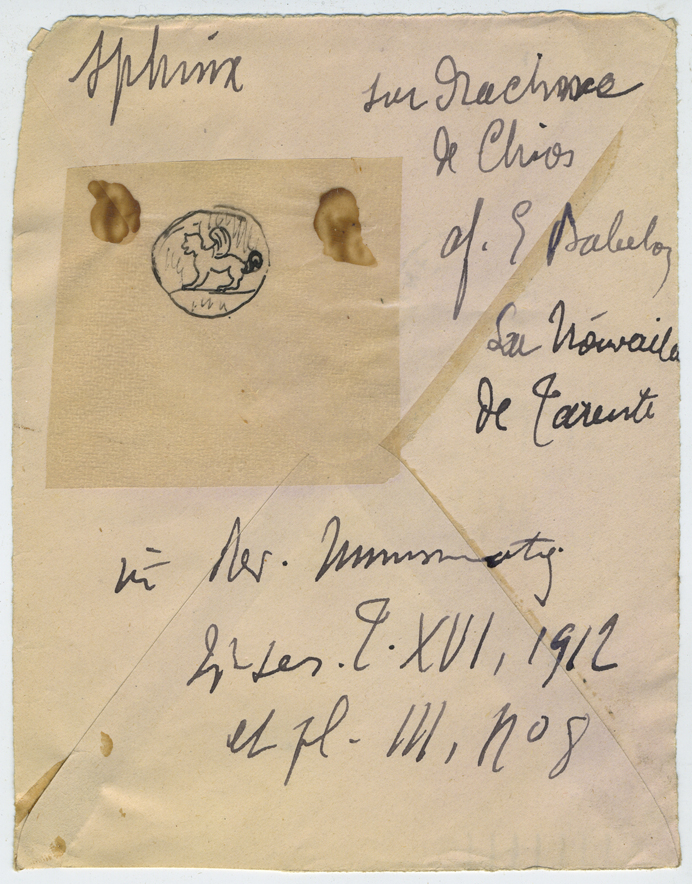 Sphinx
sur drachme
de Chios
cf. E Babelon
La Trouvaille
de Tarente
in Rev. Numismatiq.
ser. T. XVI, 1912
et pl. III, no 8